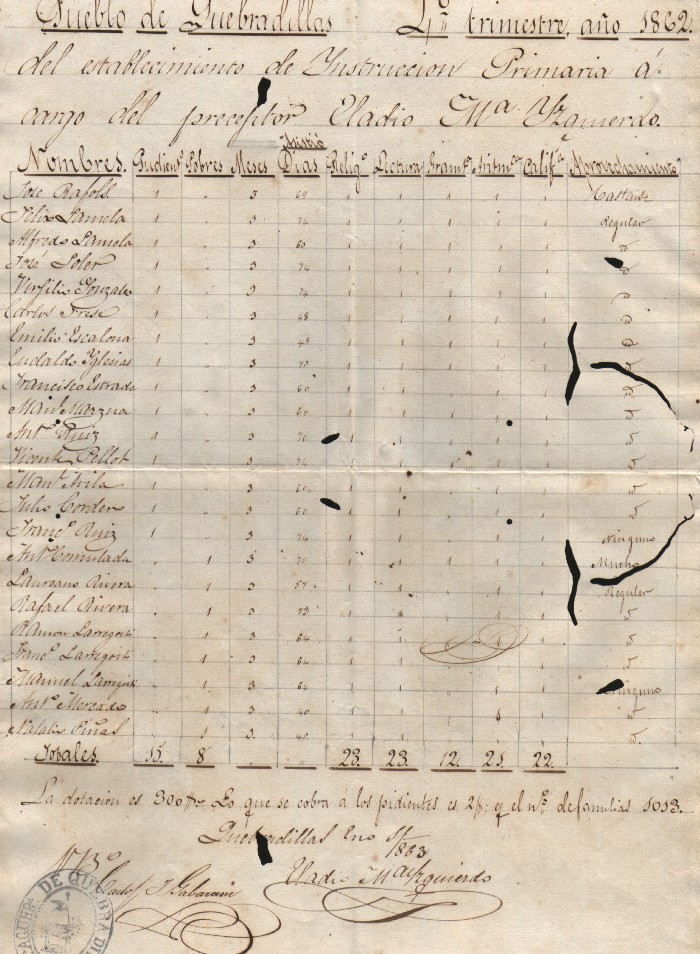 Pueblo de Quebradillas 4º trimestre, año 1862.
del establecimiento de Ynstruccion Primaria á
cargo del preceptor Eladio Mª Yzquierdo.
Asistió
Nombres. Pudient.s Pobres Meses Dias Religº Lectura Gramª Aritmª Califª Aprovechamiento
Jose Rafols 1 " 3 69 1 1 1 1 1
Felix Lamela 1 " 3 74 1 1 1 1 1 Regular
Alfredo Lamela 1 " 3 60 1 1 1 1 1
José Soler 1 " 3 74 1 1 1 1 1
Virgilio Gonzalez 1 " 3 74 1 1 1 1 1
Carlos Frese 1 " 3 48 1 1 1 1 1
Emilio Escalona 1 " 3 48 1 1 1 1 1
Eudaldo Yglesias 1 " 3 70 1 1 1 1 1
Francisco Estrada 1 " 3 60 1 1 1 1 1
Man.l 1 " 3 60 1 1 1 1 1
Antº Ruiz 1 " 3 70 1 1 1 1
Vicente Pellot 1 " 3 74 1 1 1 1 1
Man.l Avila 1 " 3 60 1 1 1 1
Julio Cordero 1 " 3 60 1 1 1 1
Francº Ruiz 1 " 3 74 1 1 Ninguno
Antº Comulada " 1 3 70 1 1 1 1 1 Mucho
Laureano Rivera " 1 3 57 1 1 1 1 Regular
Rafael Rivera " 1 3 72 1 1 1 1
Ramon Larregoiti " 1 3 64 1 1 1 1
Francº Larregoiti " 1 3 64 1 1 1 1
Manuel Larregoiti " 1 3 64 1 1 1 1 Ninguno
Antº Mercado " 1 3 40 1 1 1 1
Natalio Piñas " 1 3 40 1 1 1 1
Totales. 15. 8 " " 23. 23. 12. 21. 22.
La dotacion es 300 Lo que se cobra á los pidientes es 2 y el nº de familias 1013.
Quebradillas Enº 1863
Vº Bº
Eladio Mª Yzquierdo
DE QUEBRADI